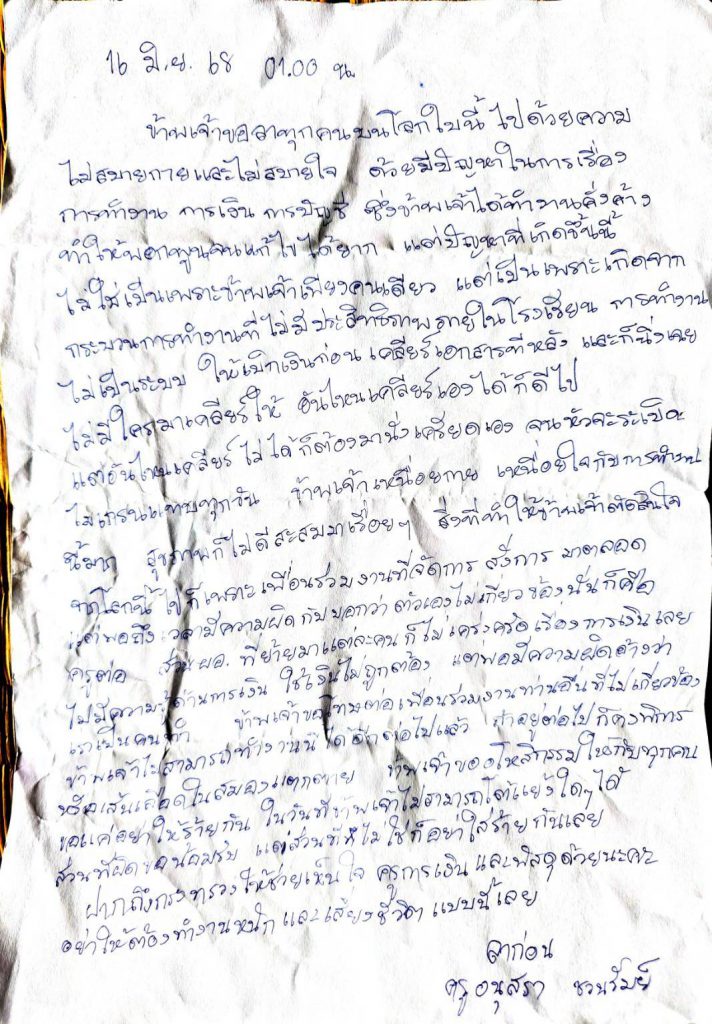 16 มิ.ย. 68 01.00 น.
ข้าพเจ้าขอลาทุกคนบนโลกใบนี้ ไปด้วยความ
ไม่สบายกายและไม่สบายใจ ด้วยมีปัญหาในการเรื่อง
การทำงาน การเงิน การบัญชี ซึ่งข้าพเจ้าได้ทำงานคั่งค้าง
ทำให้พอกพูนจนแก้ไขได้ยาก แต่ปัญหาที่เกิดขึ้นนี้
ไม่ใช่เป็นเพราะข้าพเจ้าเพียงคนเดียว แต่เป็นเพราะเกิดจาก
กระบวนการทำงานที่ไม่มีประสิทธิภาพภายในโรงเรียน การทำงาน
ไม่เป็นระบบ ให้เบิกเงินก่อน เคลียร์เอกสารทีหลัง และก็นิ่งเฉย
ไม่มีใครมาเคลียร์ให้ อันไหนเคลียร์เองได้ก็ดีไป
แต่อันไหนเคลียร์ไม่ได้ก็ต้องมานั่งเครียดเอง จนหัวจะระเบิด
ไมเกรนแทบทุกวัน ข้าพเจ้าเหนื่อยกาย เหนื่อยใจกับการทำงาน
นี้มาก สุขภาพก็ไม่ดีสะสมมาเรื่อยๆ สิ่งที่ทำให้ข้าพเจ้าตัดสินใจ
จากโลกนี้ไปก็เพราะเพื่อนร่วมงานที่จัดการ สั่งการ มาตลอด
แต่พอถึงเวลามีความผิดกับบอกว่า ตัวเองไม่เกี่ยวข้องนั่นก็คือ
ครูต่อ ส่วนผอ. ที่ย้ายมาแต่ละคน ก็ไม่เคร่งครัด เรื่องการเงินเลย
ไม่มีความรู้ด้านการเงิน ใช้เงินไม่ถูกต้อง แต่พอมีความผิดอ้างว่า
เราเป็นคนทำ ข้าพเจ้าขอโทษต่อเพื่อนร่วมงานท่านอื่นที่ไม่เกี่ยวข้อง
ข้าพเจ้าไม่สามารถทำงานนี้ได้อีกต่อไปแล้ว ถ้าอยู่ต่อไปก็คงพิการ
หรือเส้นเลือดในสมองแตกตาย ข้าพเจ้าขออโหสิกรรมให้กับทุกคน
ขอแค่อย่าให้ร้ายกัน ในวันที่ข้าพเจ้าไม่สามารถโต้แย้งใดๆ ได้
ส่วนที่ผิดขอน้อมรับ แต่ส่วนที่ไม่ใช่ก็อย่าใส่ร้ายกันเลย
ฝากถึงกระทรวงให้ช่วยเห็นใจ ครูการเงิน และพัสดุด้วยนะคะ
อย่าให้ต้องทำงานหนัก และเสี่ยงชีวิต แบบนี้เลย
ลาก่อน
ครู อนุสรา